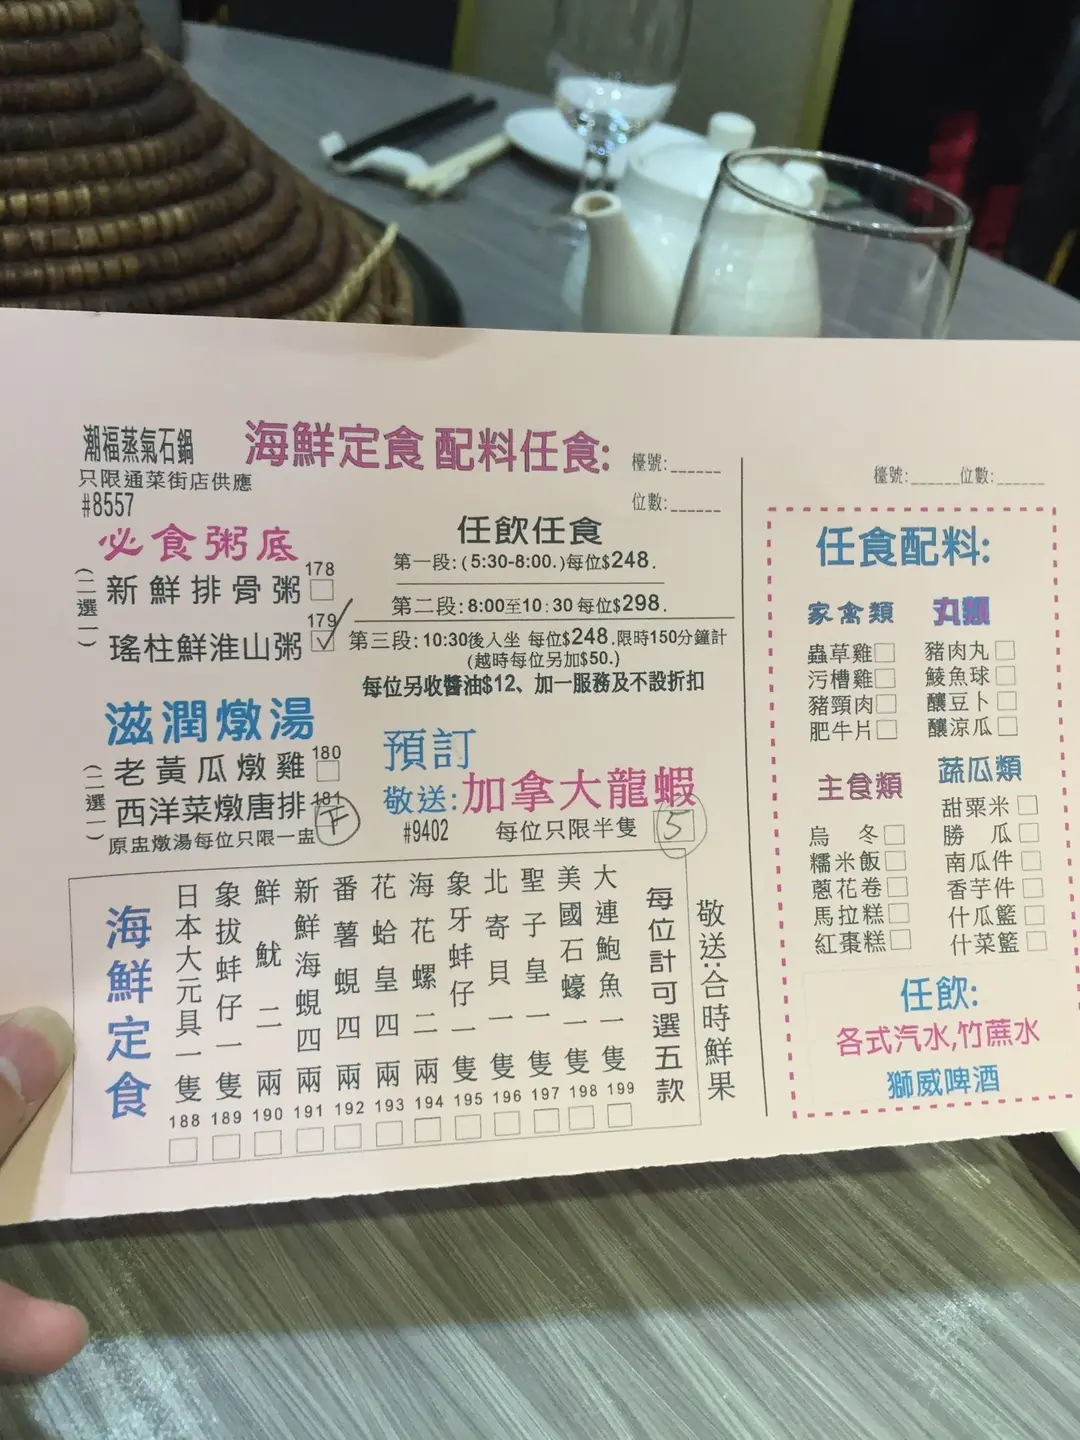 潮福蒸氣石鍋
只限通菜街店供應
#8557
海鮮定食 配料任食:
檯號:______
位數:______
必食粥底
(二選一)
新鮮排骨粥 178
瑤柱鮮淮山粥 179
任飲任食
第一段:(5:30-8:00.)每位$248.
第二段:8:00至10:30 每位$298.
第三段:10:30後入坐 每位$248.限時150分鐘計
(越時每位另加$50.)
每位另收醬油$12、加一服務及不設折扣
滋潤燉湯
(二選一)
老黃瓜燉雞 180
西洋菜燉唐排 181
原盅燉湯每位只限一盅
預訂
敬送:加拿大龍蝦
#9402 每位只限半隻 5
海鮮定食
日本大元貝一隻 188
象拔蚌仔一隻 189
鮮魷二兩 190
新鮮海蜆四兩 191
番薯蜆四兩 192
花蛤皇四兩 193
海花螺二兩 194
象牙蚌仔一隻 195
北寄貝一隻 196
聖子皇一隻 197
美國石蠔一隻 198
大連鮑魚一隻 199
每位計可選五款
敬送:合時鮮果
檯號:______位數:______
任食配料:
家禽類
蟲草雞
污槽雞
豬頸肉
肥牛片
丸類
豬肉丸
鯪魚球
釀豆卜
釀涼瓜
主食類
烏冬
糯米飯
蔥花卷
馬拉糕
紅棗糕
蔬瓜類
甜粟米
勝瓜
南瓜件
香芋件
什瓜籃
什菜籃
任飲:
各式汽水,竹蔗水
獅威啤酒